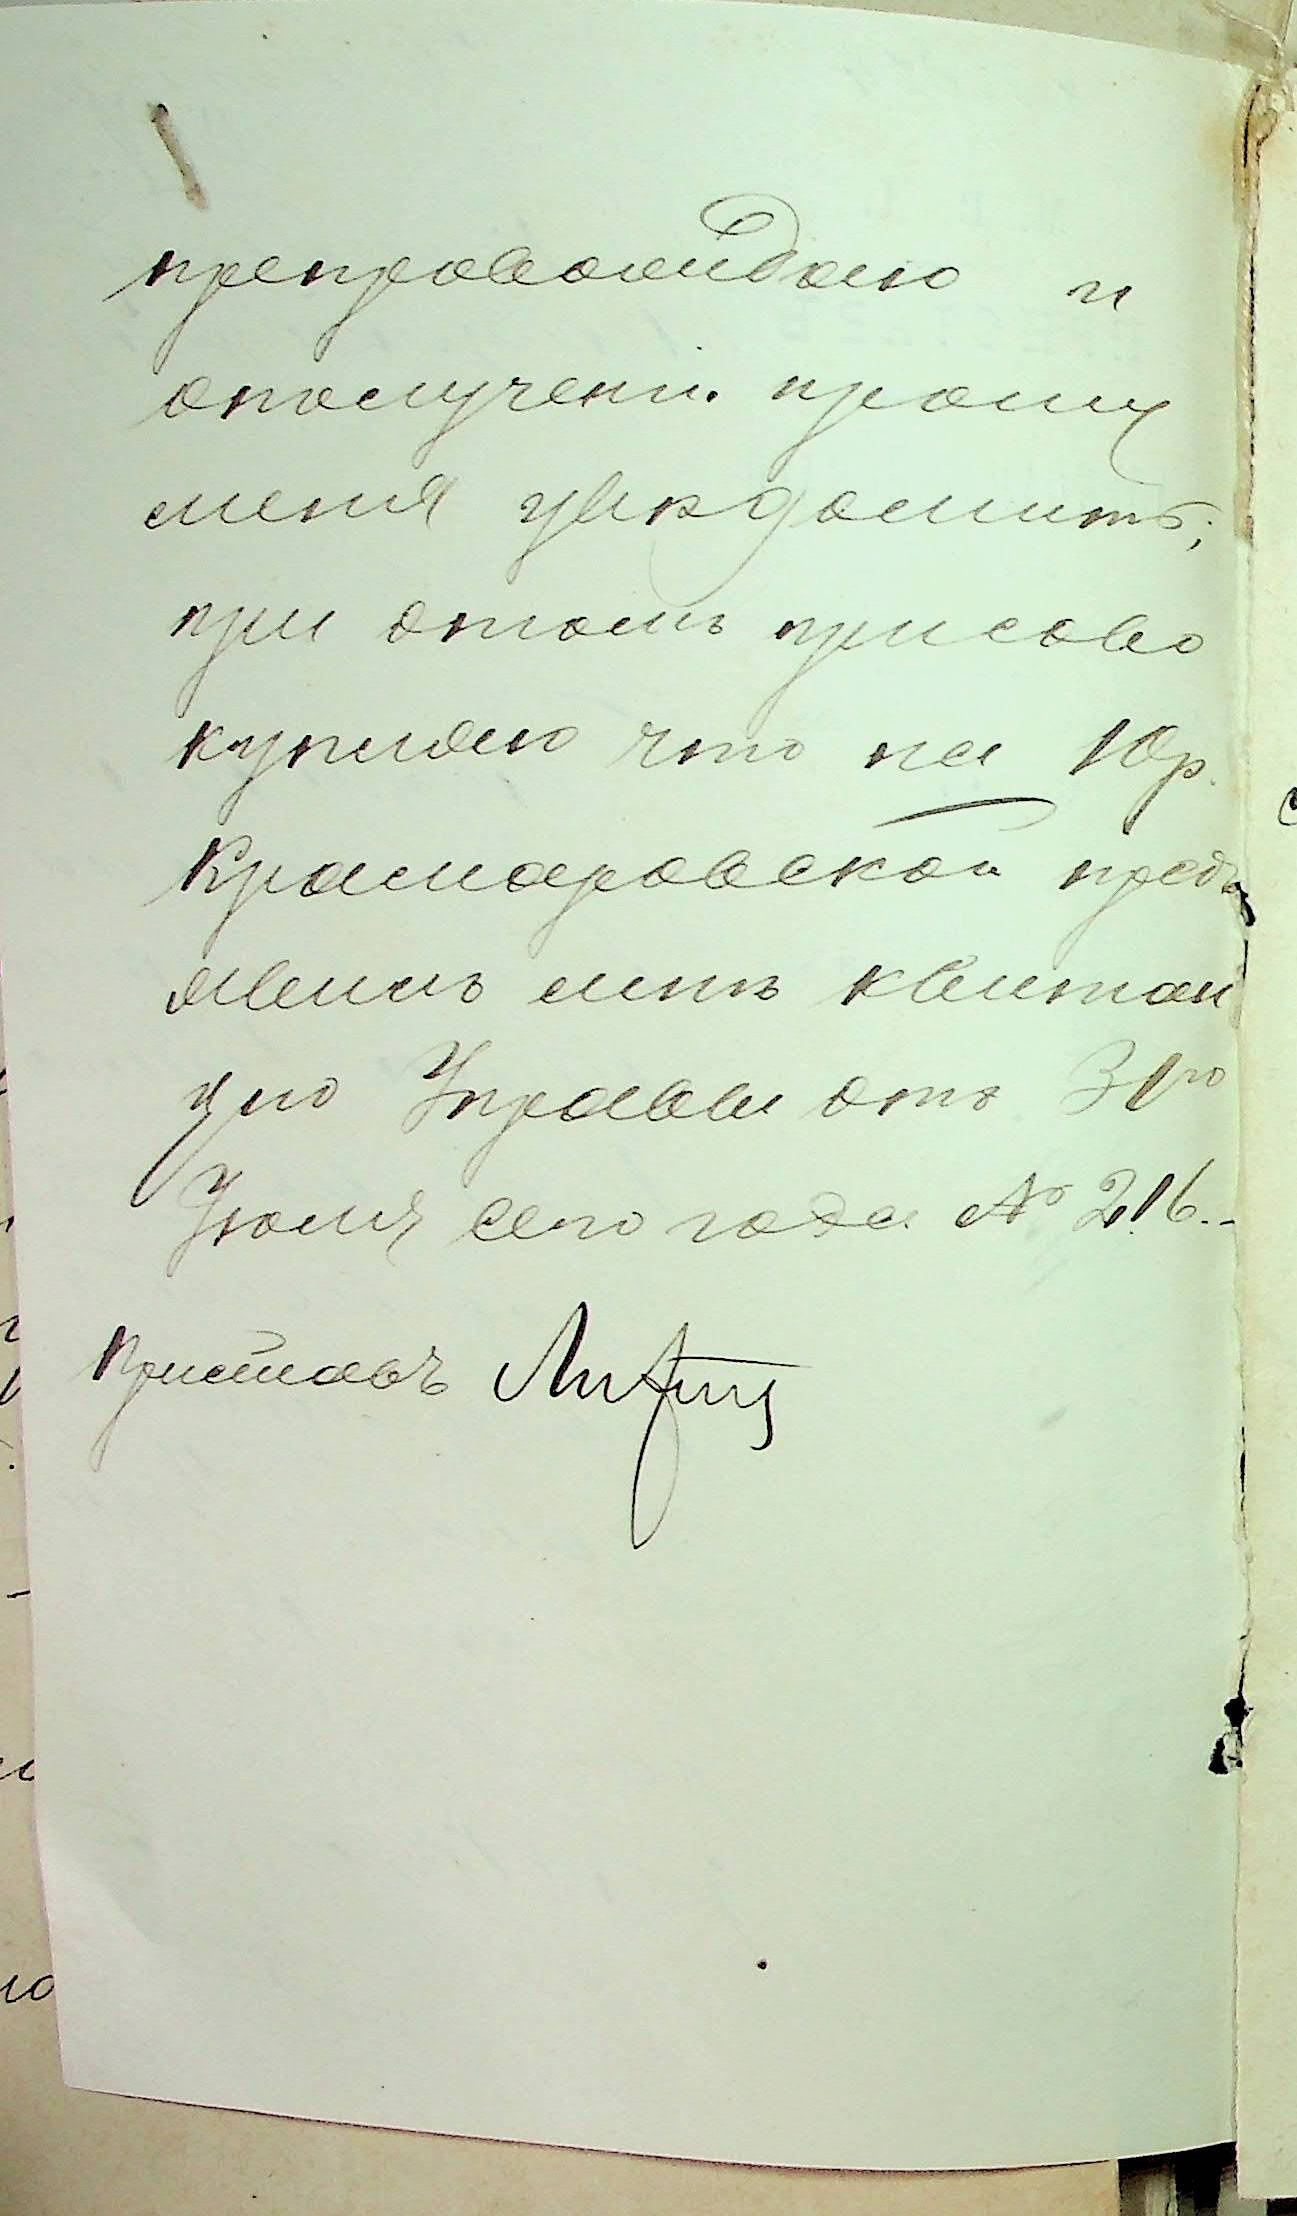 препровождаю и
ополучени. прошу
меня увѣдомить;
при этомъ присово
купляю что на 10 р.
Крамаровской предъ
явилъ мнѣ квитан
цію Управы отъ 31го
Іюля сего года № 216.
Приставъ